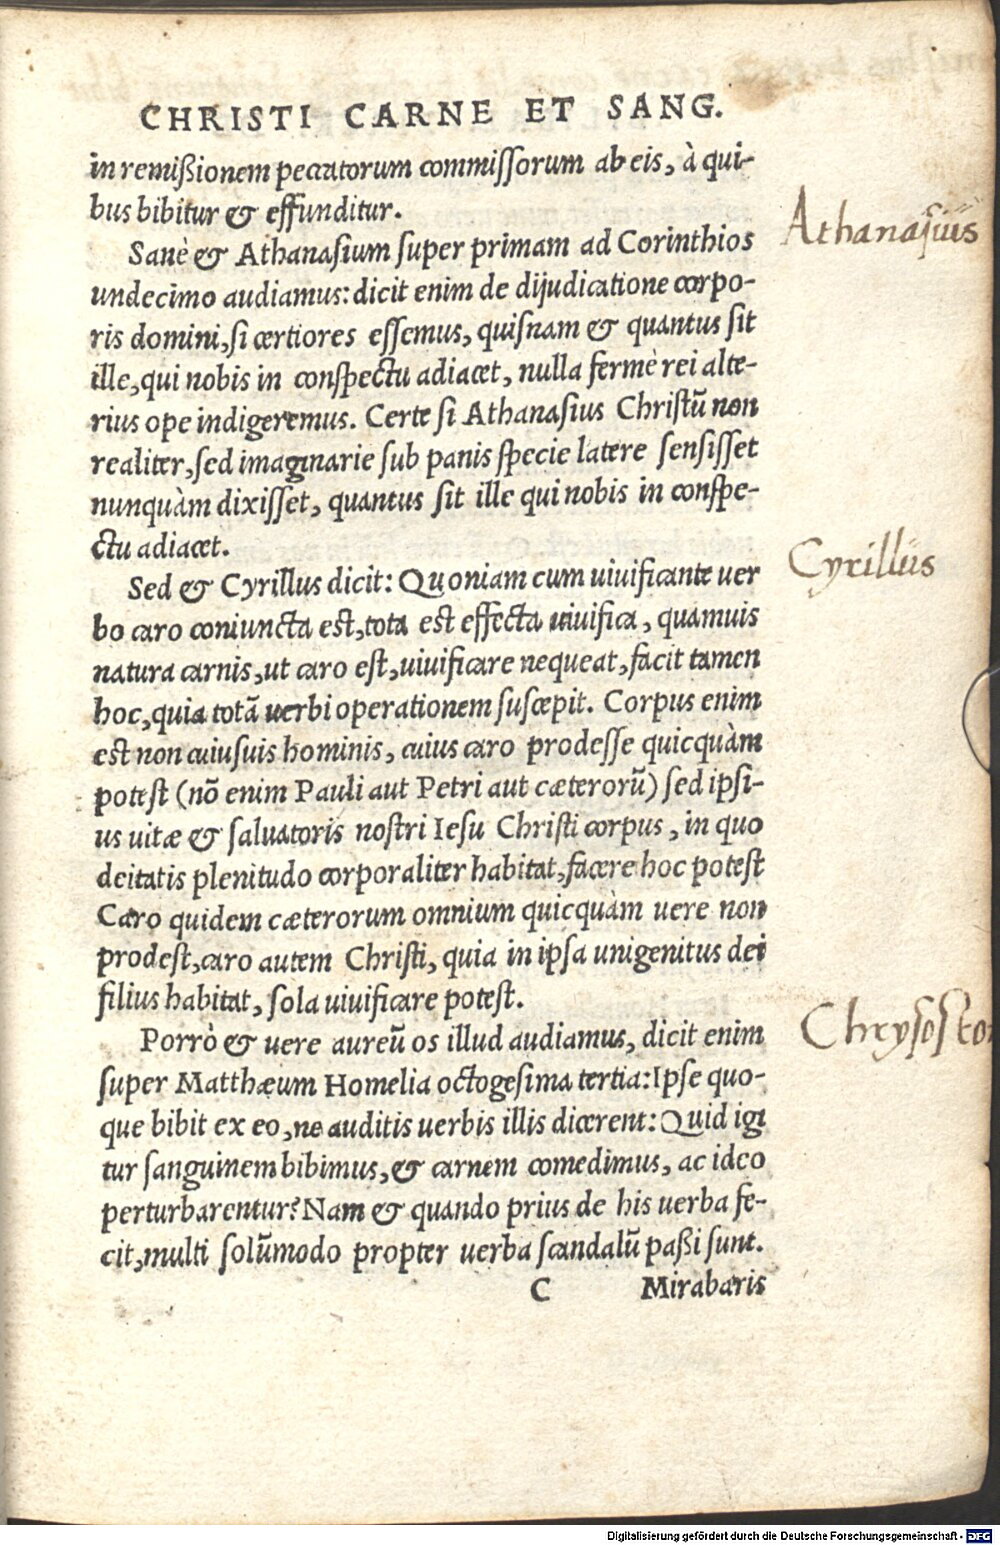 CHRISTI CARNE ET SANG.
in remißionem peccatorum commiſſorum ab eis, à qui-
bus bibitur & effunditur.
Sanè & Athanaſium ſuper primam ad Corinthios
undecimo audiamus: dicit enim de dijudicatione corpo-
ris domini, ſi certiores eſſemus, quiſnam & quantus ſit
ille, qui nobis in conſpectu adiacet, nulla fermè rei alte-
rius ope indigeremus. Certe ſi Athanaſius Chriſtū non
realiter, ſed imaginarie ſub panis ſpecie latere ſenſiſſet
nunquàm dixiſſet, quantus ſit ille qui nobis in conſpe-
ctu adiacet.
Sed & Cyrillus dicit: Quoniam cum uiuificante uer
bo caro coniuncta eſt, tota eſt effecta uiuifica, quamuis
natura carnis, ut caro eſt, uiuificare nequeat, facit tamen
hoc, quia totā uerbi operationem ſuſcepit. Corpus enim
eſt non cuiuſuis hominis, cuius caro prodeſſe quicquàm
poteſt (nō enim Pauli aut Petri aut cæterorū) ſed ipſi-
us uitæ & ſaluatoris noſtri Ieſu Chriſti corpus, in quo
deitatis plenitudo corporaliter habitat, facere hoc poteſt
Caro quidem cæterorum omnium quicquàm uere non
prodeſt, caro autem Chriſti, quia in ipſa unigenitus dei
filius habitat, ſola uiuificare poteſt.
Porrò & uere aureū os illud audiamus, dicit enim
ſuper Matthæum Homelia octogeſima tertia: Ipſe quo-
que bibit ex eo, ne auditis uerbis illis dicerent: Quid igi
tur ſanguinem bibimus, & carnem comedimus, ac ideo
perturbarentur? Nam & quando prius de his uerba fe-
cit, multi ſolūmodo propter uerba ſcandalū paßi ſunt.
C Mirabaris
Athanaſius
Cyrillus
Chryſoſto
Digitalisierung gefördert durch die Deutsche Forschungsgemeinschaft - DFG